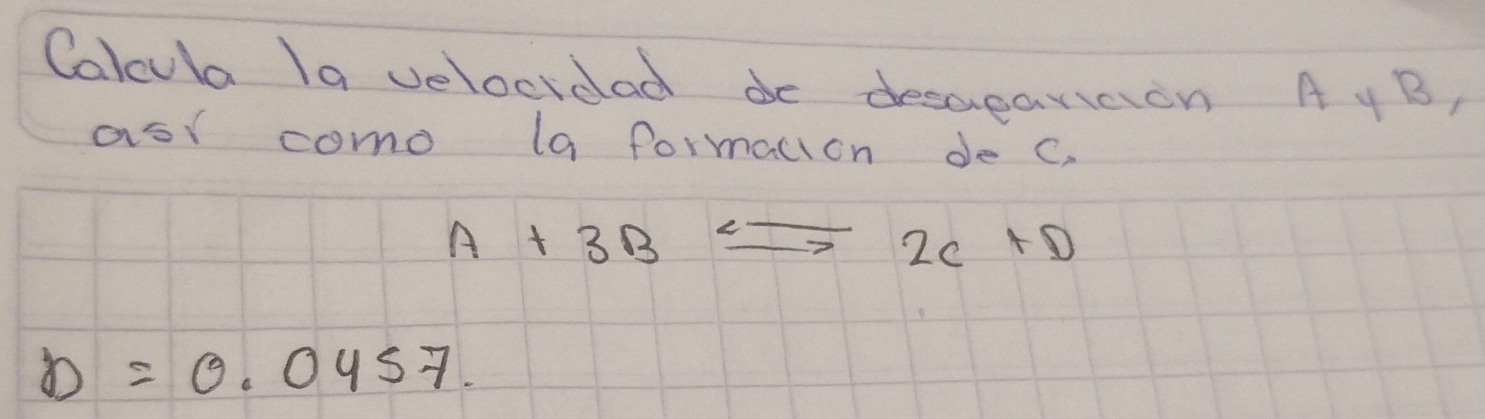 Calcula la velocidad de desaparición A y B,
así como la formación de C.
A + 3B ⇌ 2C + D
D = 0.0457.